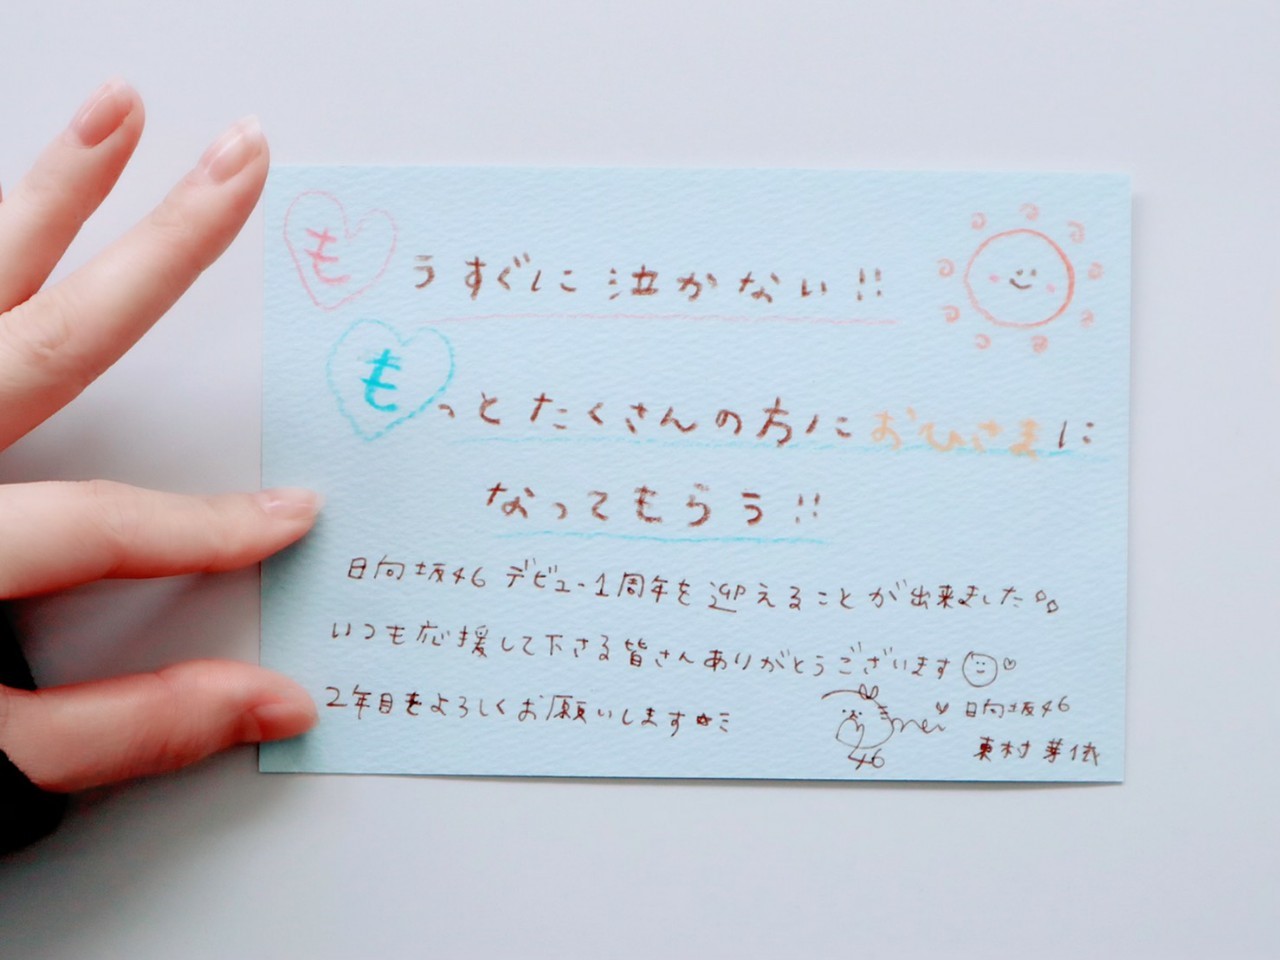 もうすぐに泣かない!!
もっとたくさんの方におひさまに
なってもらう!!
日向坂46 デビュー1周年を迎えることが出来ました。。
いつも応援して下さる皆さんありがとうございます
2年目もよろしくお願いします☆ミ
mei
46
日向坂46
東村芽依